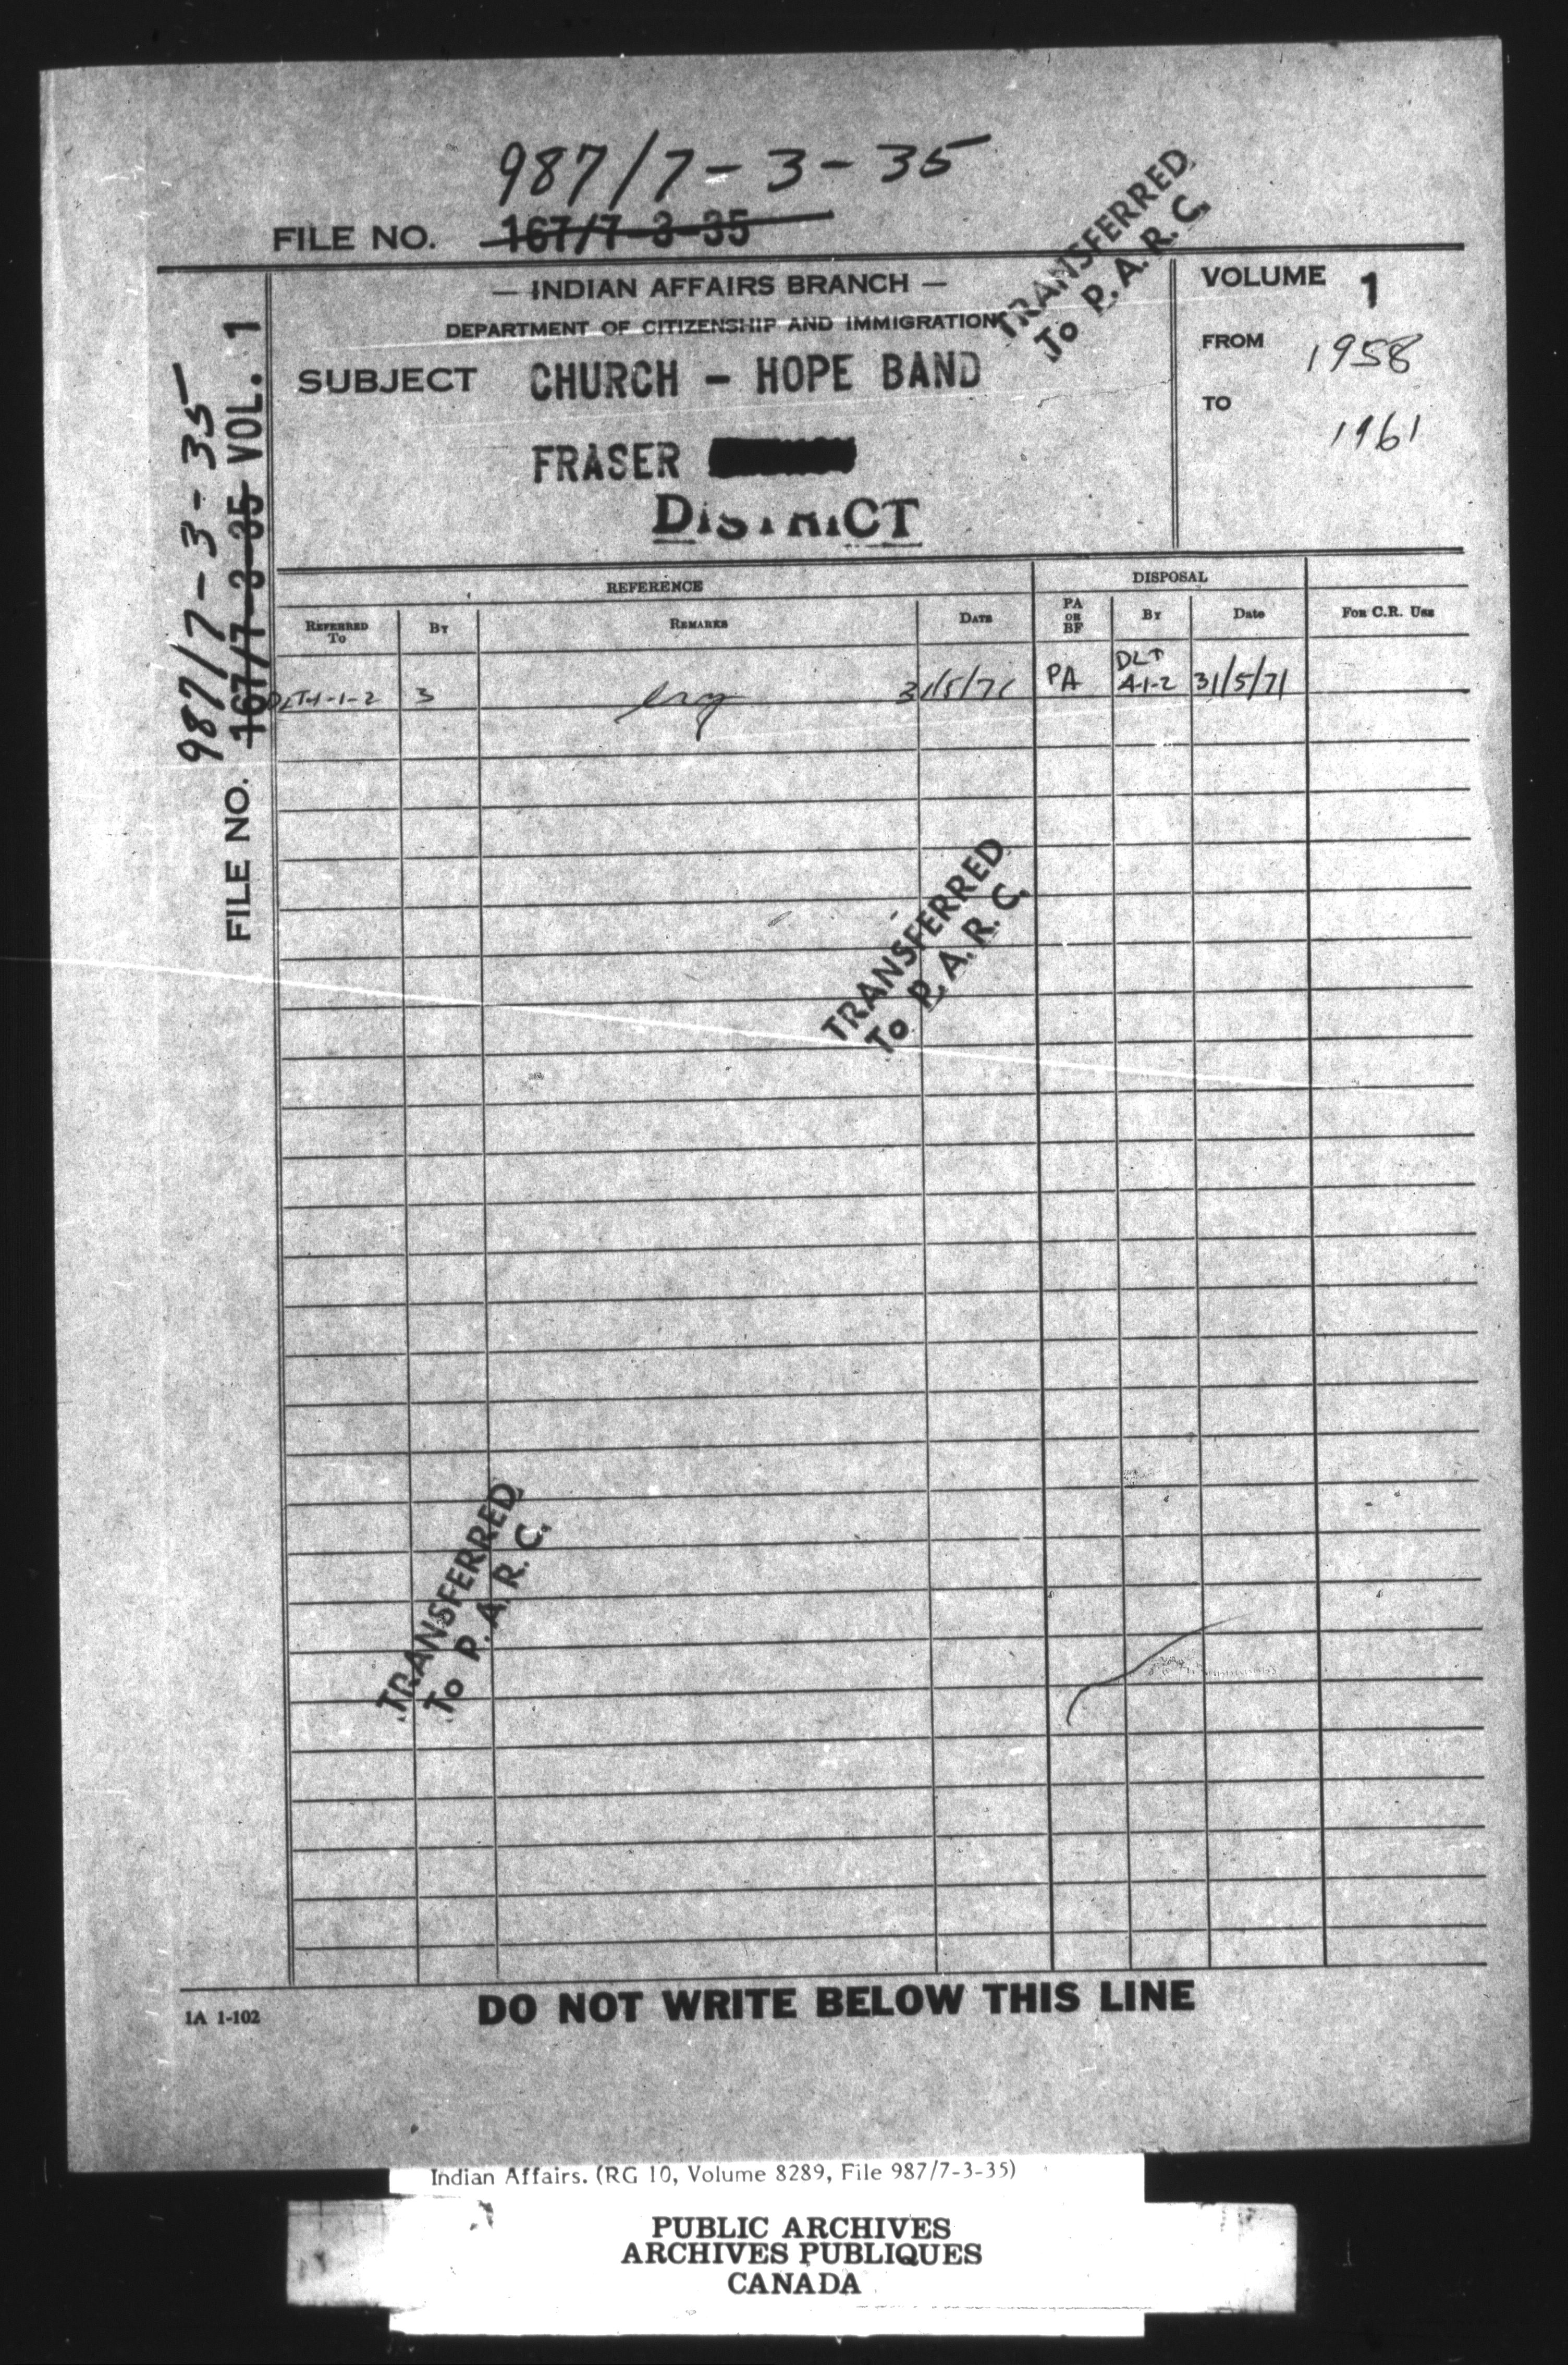 987/7-3-35
FILE NO. 167/7-3-35
TRANSFERRED
To P.A.R.C.
— INDIAN AFFAIRS BRANCH —
DEPARTMENT OF CITIZENSHIP AND IMMIGRATION
SUBJECT CHURCH - HOPE BAND
FRASER
DISTRICT
VOLUME 1
FROM 1958
TO 1961
FILE NO. 167/7-3-35 VOL. 1
987/7-3-35
REFERENCE
DISPOSAL
REFERRED To
BY
REMARKS
DATE
PA OR BF
BY
Date
FOR C.R. USE
3 31/5/71 PA DLT A-1-2 31/5/71
TRANSFERRED
To P.A.R.C.
TRANSFERRED
To P.A.R.C.
IA 1-102
DO NOT WRITE BELOW THIS LINE
Indian Affairs. (RG 10, Volume 8289, File 987/7-3-35)
PUBLIC ARCHIVES
ARCHIVES PUBLIQUES
CANADA